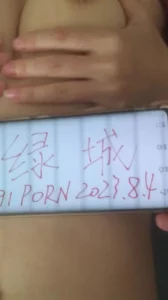 绿城
91 PORN 2023.8.4